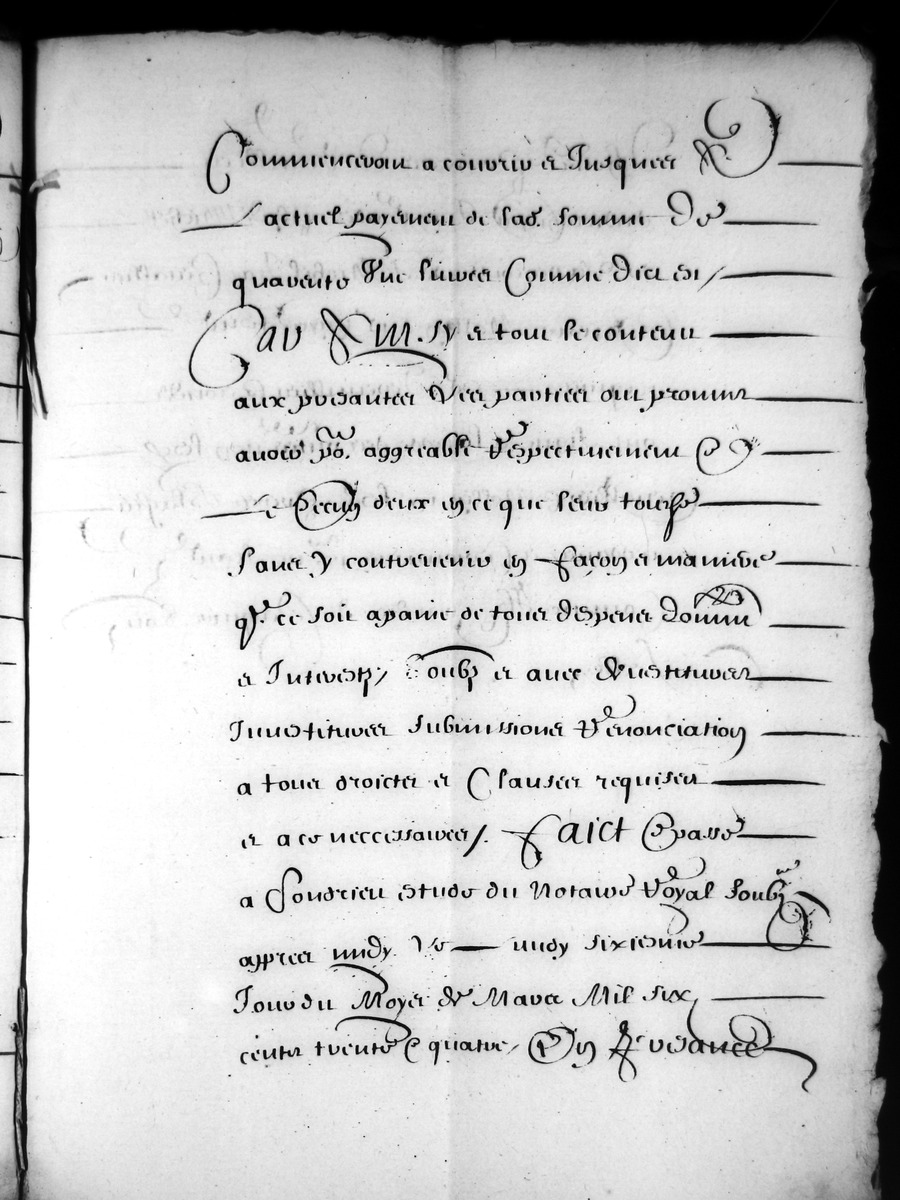 Commenceron a courir et Jusques A
l'actuel payement de lad. somme De
quarente Une livres Comme dict est /
Car Ain. sy et tout le contenu
aux presantes Les parties ont promis
avoir po. aggreable Respectivement E
Chacun deux en ce que leur touche
sans y contrevenir en facon et maniere
q. ce soit a paine de tous despens domm
et Interestz / soubz et avec
submissions Renonciation
a tous droictz et Clauses requises
et a ce neccessaires /. Faict E passe
a estude du Notaire Royal soubz.
appres midy Le midy sixiesme
Jour du Moys de Mars Mil six
centz trente E quatre / En Presance